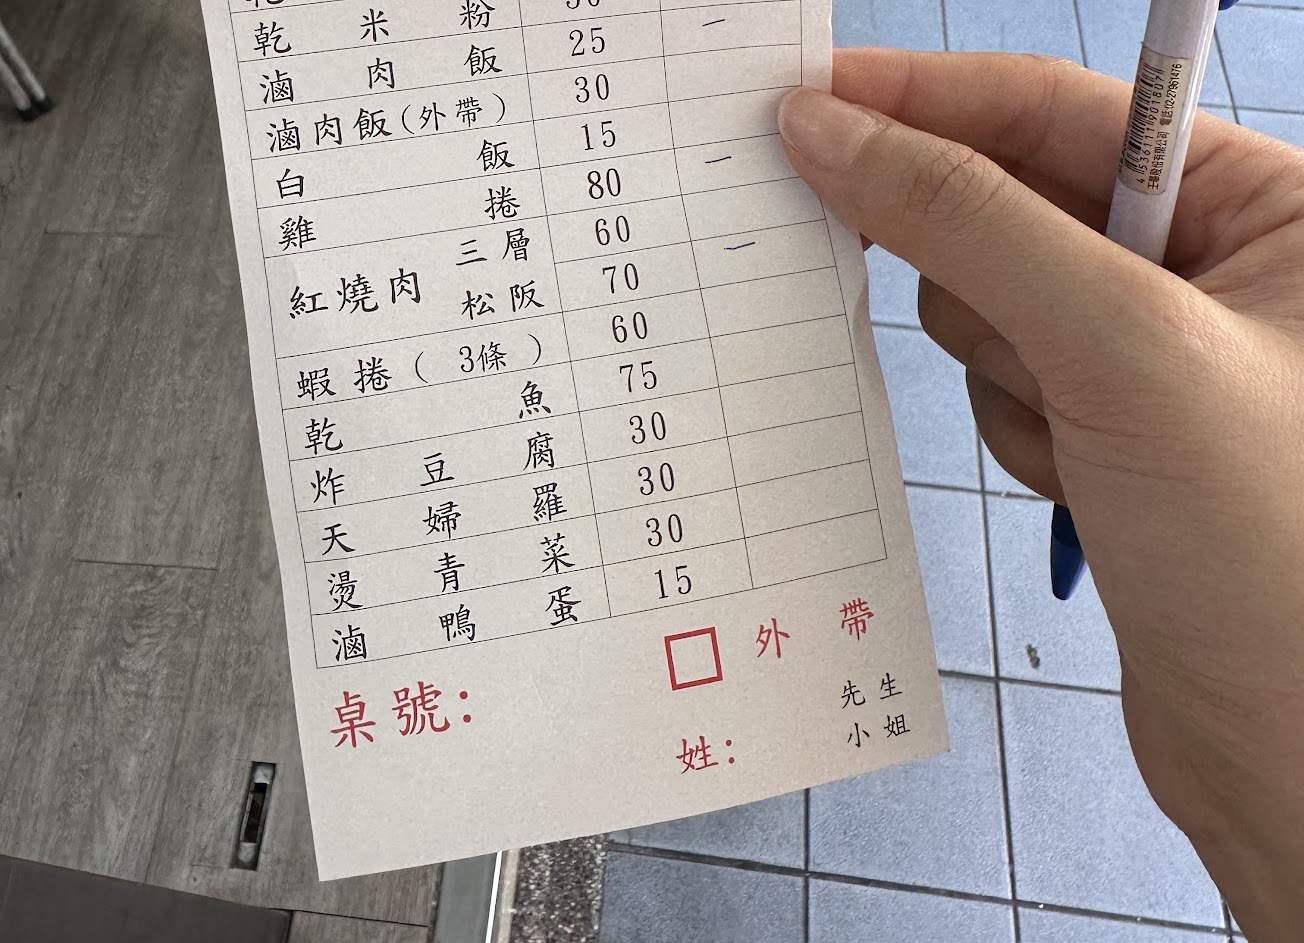 乾米粉
滷肉飯 25 一
滷肉飯(外帶) 30
白飯 15
雞捲 80 一
紅燒肉 三層 60
松阪 70 一
蝦捲( 3條 ) 60
乾魚 75
炸豆腐 30
天婦羅 30
燙青菜 30
滷鴨蛋 15
外帶
桌號:
先生
姓:
小姐
4 536111 901807
王華股份有限公司 電話:02-27961476